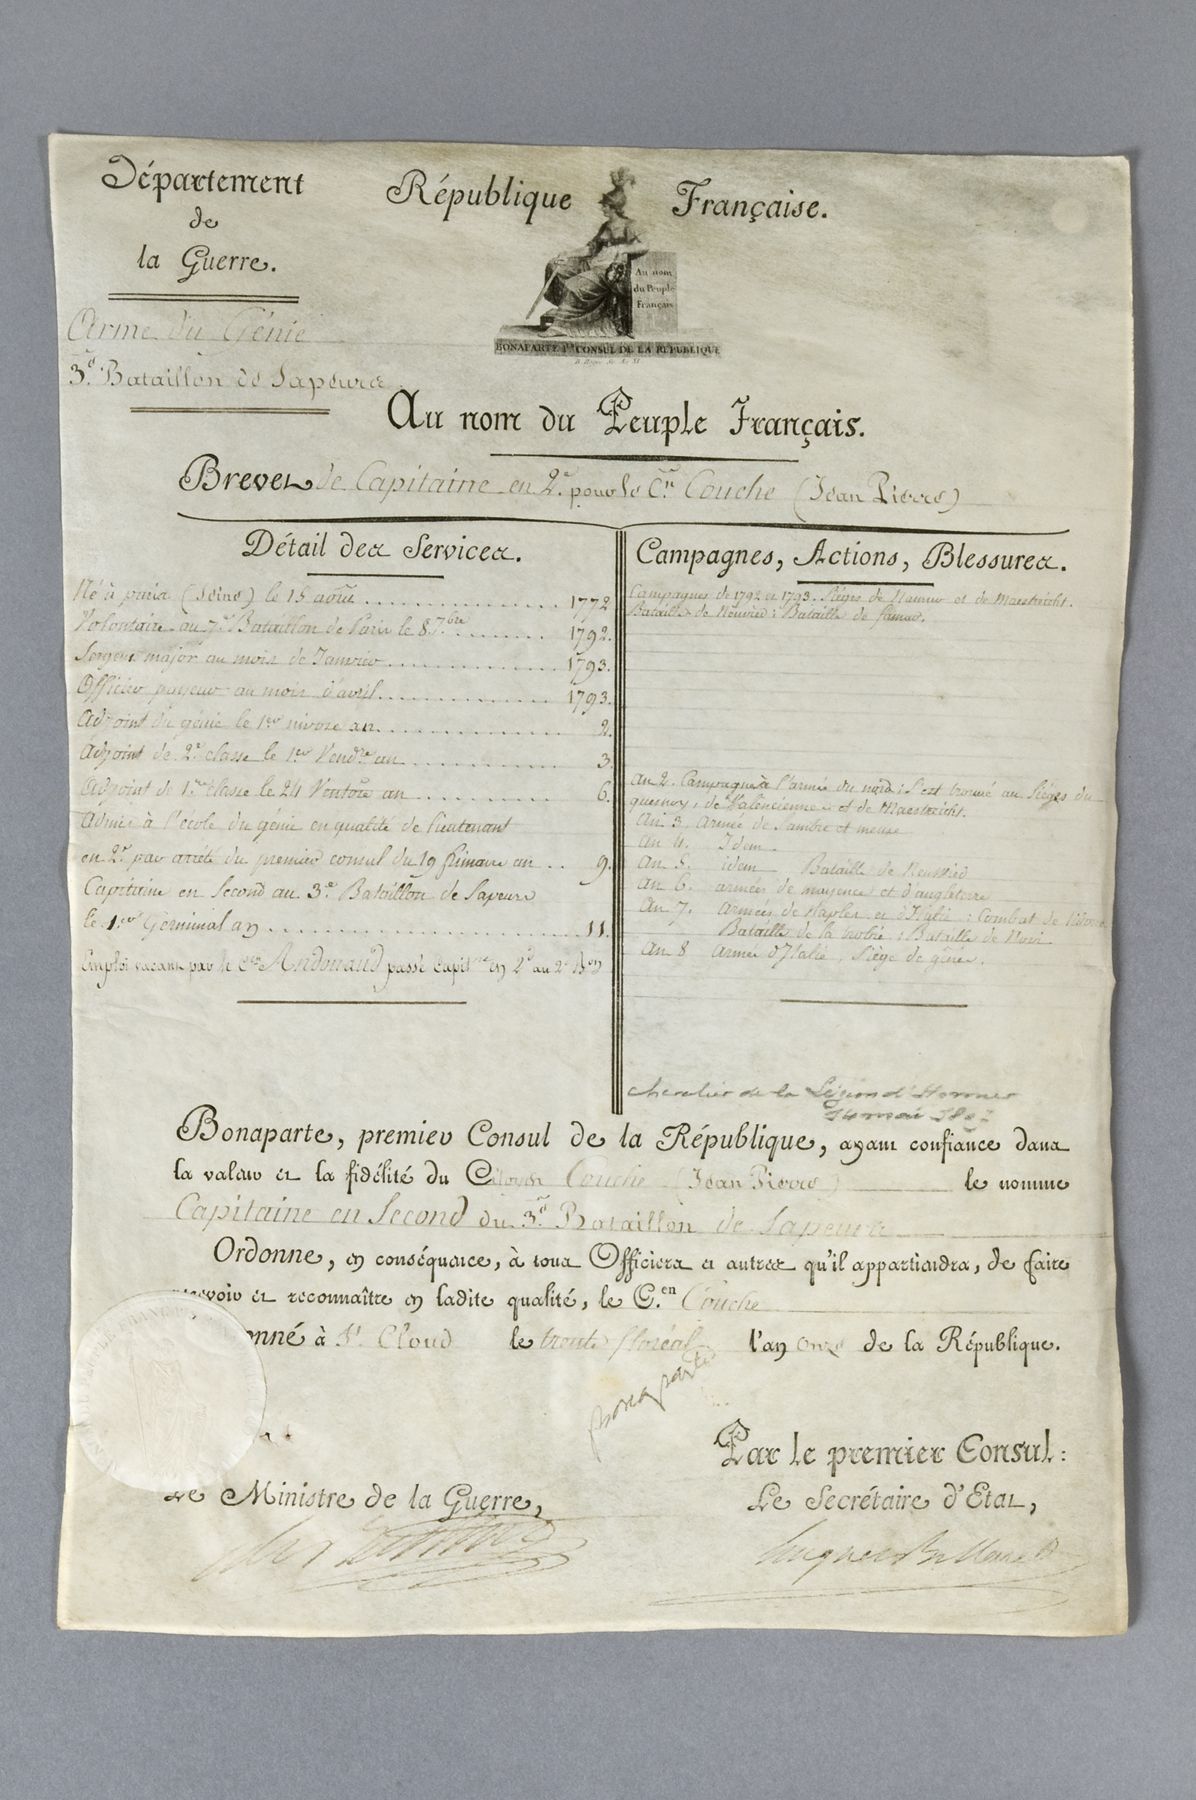 Département
de
la Guerre.
République Française.
Au nom
du Peuple
Français
BONAPARTE 1er CONSUL DE LA REPUBLIQUE
Arme du Génie
3e. Bataillon de Sapeurs
Au nom du Peuple Français.
Brevet de Capitaine en 2e. pour le Cen Couche (Jean Pierre)
Détail des Services.
Né à paris (Seine) le 15 août 1772
Volontaire au 7e Bataillon de Paris le 8 7bre 1792.
Sergent major au mois de Janvier 1793.
Officier payeur au mois d'avril 1793.
Adjoint du génie le 1er nivose an 2.
Adjoint de 2e classe le 1er Vendre an 3.
Adjoint de 1re classe le 24 Ventose an 6.
Admis à l'école du génie en qualité de lieutenant
en 2e par arrêté du premier consul du 19 frimaire an 9.
Capitaine en Second au 3e Bataillon de Sapeurs
le 1er Germinal an 11.
Emploi vacant par le Cen Andouaud passé Capitne en 2d au 2e Bon
Campagnes, Actions, Blessures.
Campagnes de 1792 et 1793. Sièges de Namur et de Maestricht.
Bataille de Neuvied : Bataille de famar.
an 2. Campagne à l'armée du nord : S'est trouvé au Sièges du
quesnoy, de Valenciennes et de Maestricht.
an 3. Armée de Sambre et meuse
an 4. Idem
an 5. idem Bataille de Neuwied
an 6. armées de mayence et d'angleterre
an 7. armées de Naples et d'Italie : Combat de
Bataille de la trebie : Bataille de Novi
an 8 Armée d'Italie, Siège de gênes.
chevalier de la Légion d'Honneur
14 mai
Bonaparte, premier Consul de la République, ayant confiance dans
la valeur et la fidélité du Citoyen Couche (Jean Pierre) le nomme
Capitaine en Second du 3e Bataillon de Sapeurs
Ordonne, en conséquence, à tous Officiers et autres qu'il appartiendra, de faire
recevoir et reconnaître en ladite qualité, le C.en Couche
Donné à St Cloud le trente floréal l'an onze de la République.
Bonaparte
Par le premier Consul :
Le Ministre de la Guerre,
Le Secrétaire d'Etat,
Hugues B. Maret